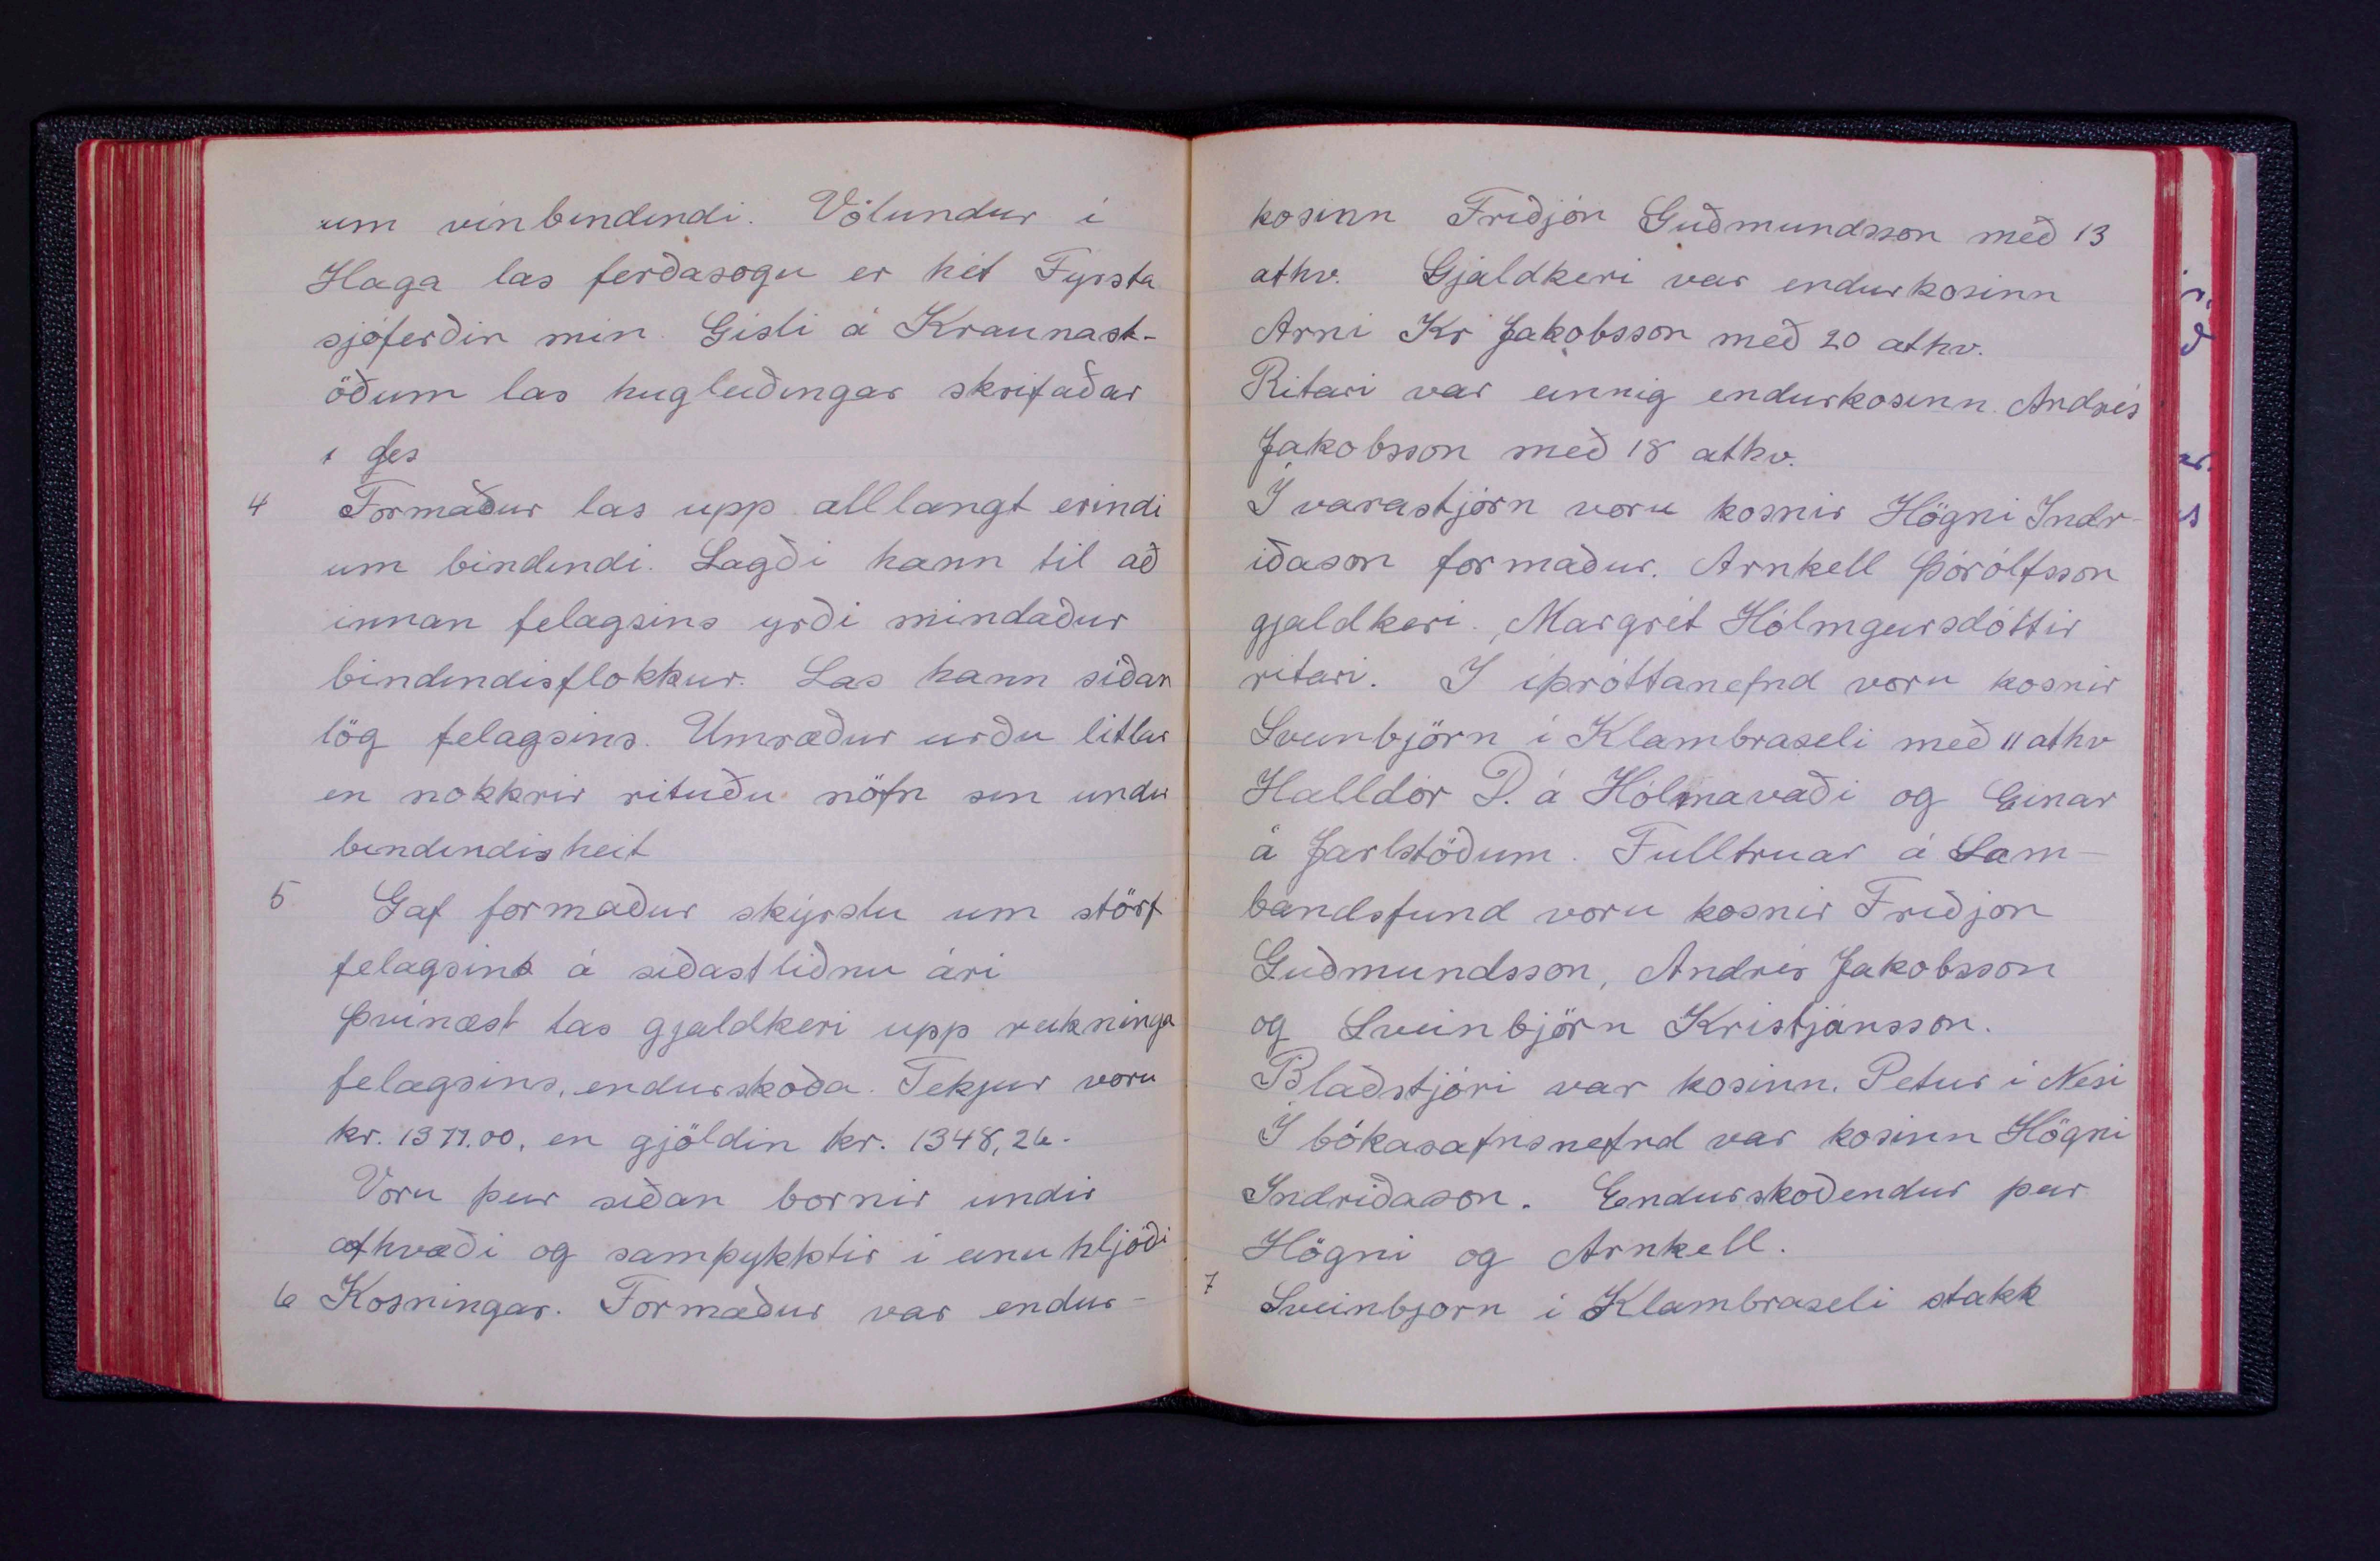 um vínbindindi. Völundur í
Haga las ferðasögu er hét Fyrsta
sjóferðin mín. Gísli á Kraunast-
öðum las hugleiðingar skrifaðar
í
4 Formaður las upp alllangt erindi
um bindindi. Lagði hann til að
innan felagsins yrði mindaður
bindindisflokkur. Las hann síðan
lög felagsins. Umræður urðu litlar
en nokkrir rituðu nöfn sín undir
bindindisheit
5 Gaf formaður skýrslu um störf
felagsins á siðastliðnu ári
Þvínæst las gjaldkeri upp reikninga
felagsins, endurskoða. Tekjur voru
kr. en gjöldin kr. 1348,26.
Voru þeir síðan bornir undir
athvæði og samþykktir í einu hljóði
6 Kosningar. Formaður var endur-
kosinn Friðjón Guðmundsson með 13
athv. Gjaldkeri var endurkosinn
Arni Kr Jakobsson með 20 athv.
Ritari var einnig endurkosinn Andrés
Jakobsson með 18 athv.
Í varastjórn voru kosnir Högni Indr-
iðason formaður. Arnkell Þórólfsson
gjaldkeri. Margrét Hólmgeirsdóttir
ritari. I íþróttanefnd voru kosnir
Sveinbjörn í Klambraseli með 11 athv
Halldór D. á Hólmavaði og Einar
á Jarlstöðum. Fulltruar á Sam-
bandsfund voru kosnir Friðjon
Guðmundsson, Andrés Jakobsson
og Sveinbjörn Kristjánsson.
Blaðstjóri var kosinn. Petur í Nesi
Í bókasafnsnefnd var kosinn Högni
Indriðason. Endurskoðendur þeir
Högni og Arnkell.
7 Sveinbjorn í Klambraseli stakk